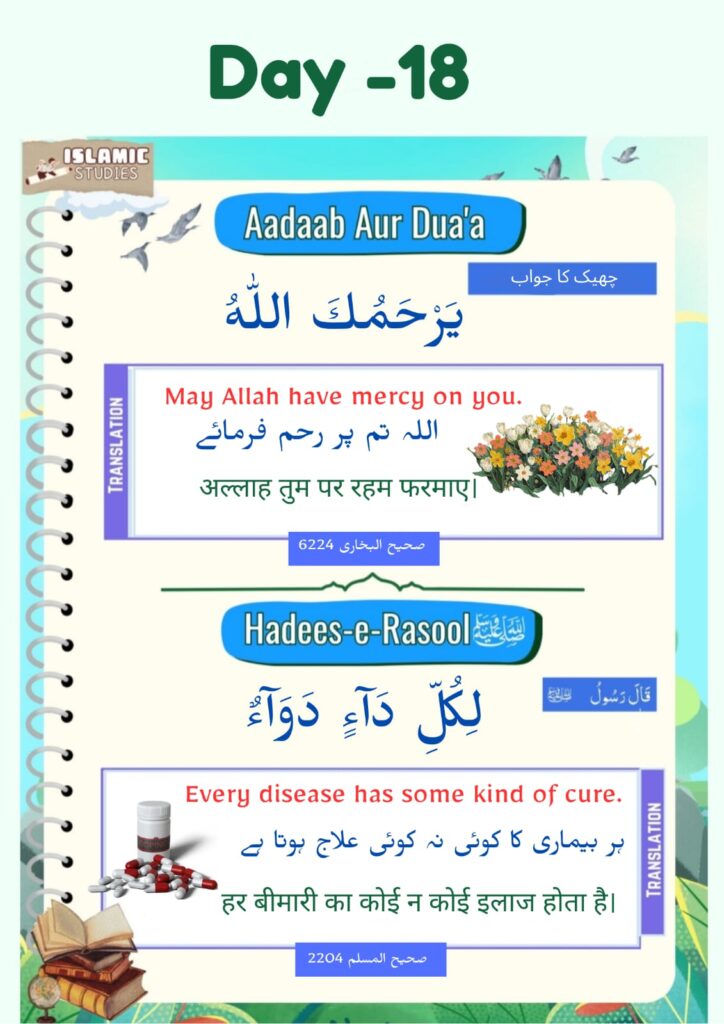 Day -18
ISLAMIC
STUDIES
Aadaab Aur Dua'a
چھیک کا جواب
يَرْحَمُكَ اللّٰهُ
TRANSLATION
May Allah have mercy on you.
اللہ تم پر رحم فرمائے
अल्लाह तुम पर रहम फरमाए|
صحیح البخاری 6224
Hadees-e-Rasool ﷺ
قَالَ رَسُولُ ﷺ
لِكُلِّ دَآءٍ دَوَآءٌ
Every disease has some kind of cure.
ہر بیماری کا کوئی نہ کوئی علاج ہوتا ہے
हर बीमारी का कोई न कोई इलाज होता है|
TRANSLATION
صحیح المسلم 2204